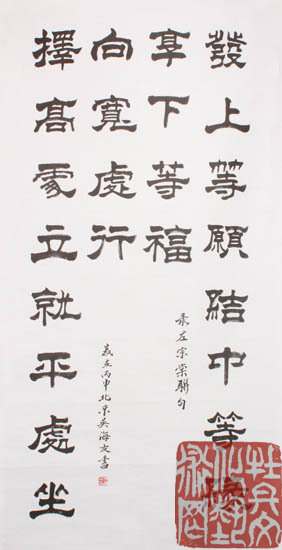 發上等願結中等緣
享下等福
录左宗棠聯句
擇髙處立就平處坐
向寬處行
歲在丙申北京吳海友書